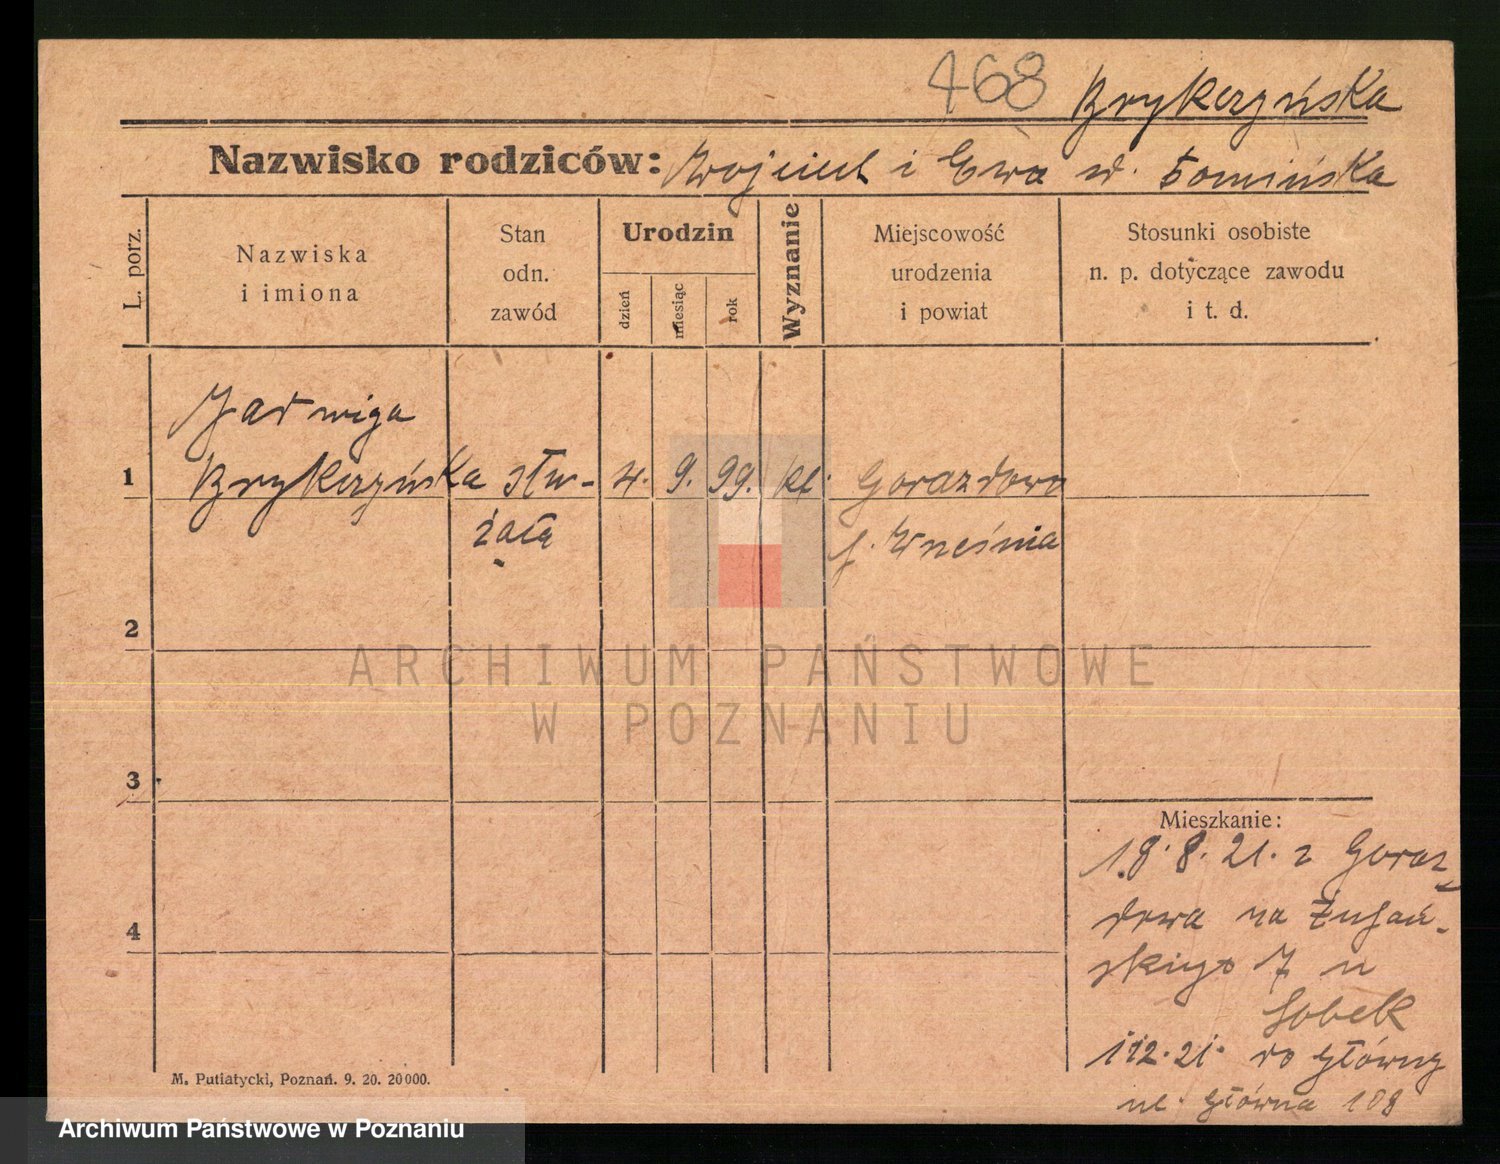 468 Brykczyńska
Nazwisko rodziców: Wojciech i Ewa d. Łomińska
L. porz.
Nazwiska
i imiona
Stan
odn.
zawód
Urodzin
dzień
miesiąc
rok
Wyznanie
Miejscowość
urodzenia
i powiat
Stosunki osobiste
n. p. dotyczące zawodu
i t. d.
Jadwiga
1 Brykczyńska słu- 4. 9. 99. kt. Gorazdowo
żąca
Września
2
ARCHIWUM PAŃSTWOWE
W POZNANIU
3
Mieszkanie:
18.8.21. z Goraz
dowa na
4
skiego 7 u
Sobek
112.21. do Główny
ul. Główna 108
M. Putiatycki, Poznań. 9. 20. 20000.
Archiwum Państwowe w Poznaniu